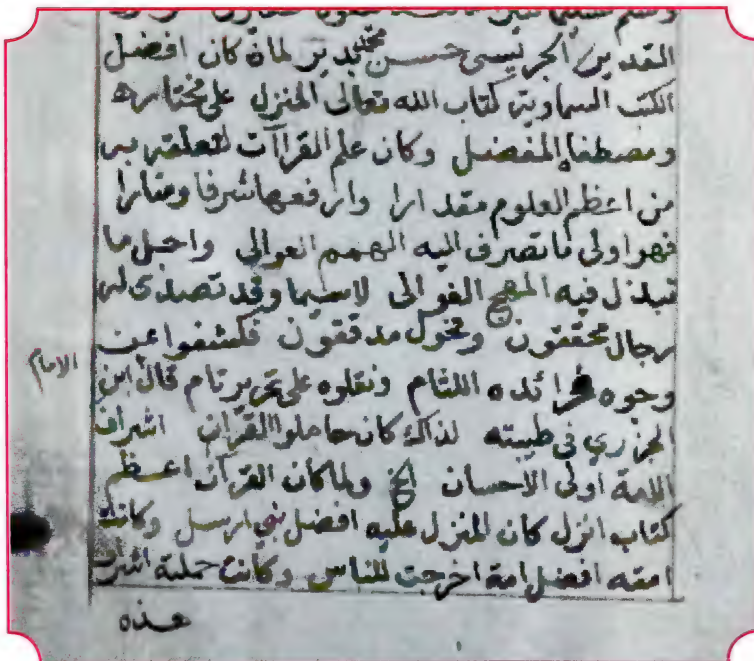 المقدير الجريسي حسن بدير لماة كان افضل
الكتب السماوية كتاب الله تعالى المنزل على مختاره
ومصطفاه المفضل وكان علم القراآت لتعلقه به
من اعظم العلوم مقدارا وارفعها شرفا ومنارا
فهو اولى ما تصرف اليه الهمم العوالى واجل ما
تبذل فيه المهج الغوالى لاسيما وقد تصدى له
رجال محققون وفحول مدققون فكشفوا عن
وجوه فرائده اللثام ونقلوه على تحرير تام قال ابن
الامام
الجزري فى طيبته لذاك كان حاملوا القرآن اشراف
الامة اولى الاحسان الخ ولما كان القرآن اعظم
كتاب انزل كان المنزل عليه افضل نبي ارسل وكانت
امته افضل امة اخرجت للناس وكانت حملته اشرف
هذه